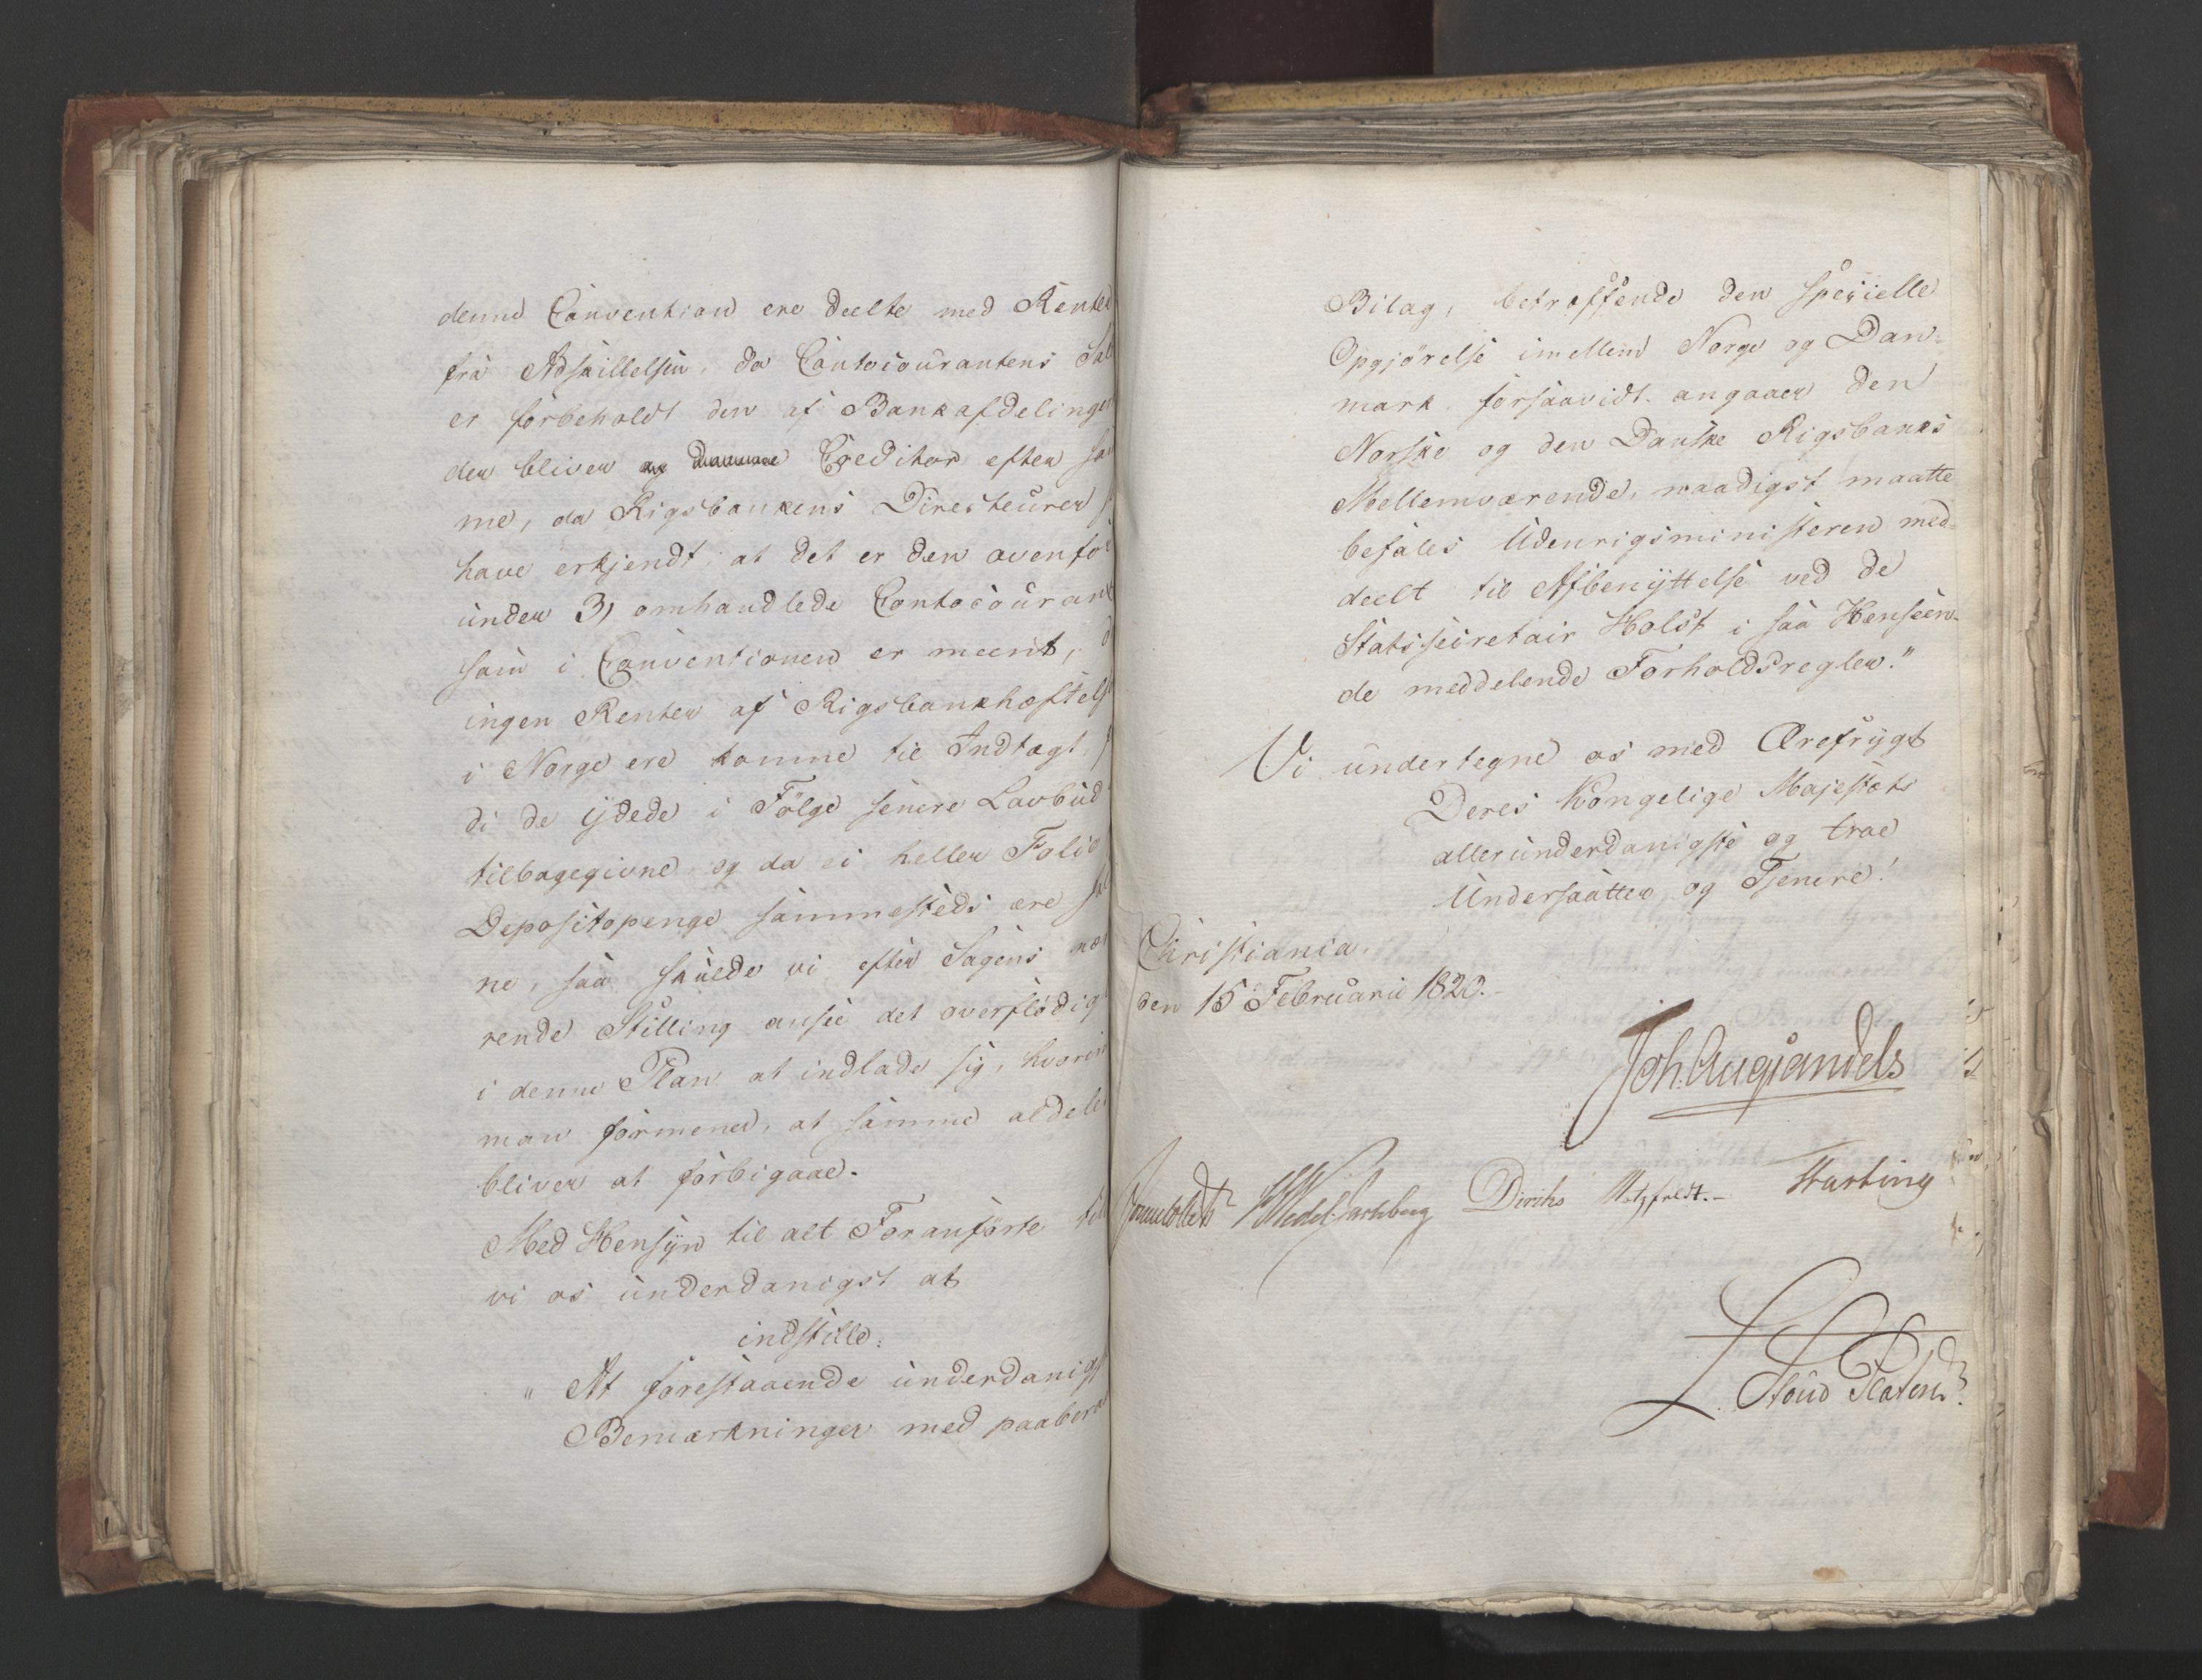 denne Convention ere deelte med Renter
fra Adskillelsen, da Contocourantens Sal
er forbeholdt den af Bankafdelingen
der bliver Creditor efter sam
me, da Rigsbankens Directeurer
have erkjendt, at det er den ovenfor
under 3) omhandlede Contocourant
som i Conventionen er meent, d
ingen Renter af Rigsbankhæftels
i Norge ere komne til Indtægt, f
di de ydede i Følge senere Lovbud
tilbagegivne og da ei heller Folio
Depositopenge sammesteds ere
ne, saa skulde vi efter Sagens nær
rende Stilling ansee det overflødigt
i denne Plan at indlade sig, hvorim
man formener, at samme aldeles
bliver at forbigaae.
Med Hensyn til alt Foranførte till
vi os underdanigst at
indstille:
" At forestaaende underdanigst
Bemærkninger med paabero
Bilag, betræffende den specielle
Opgjørelse imellem Norge og Dan-
mark forsaavidt angaaer den
Norske og den Danske Rigsbanks
Mellemværende, naadigst maatte
befales Udenrigsministeren med-
deelt til Afbenyttelse ved de
Statssecretair Holst i saa Henseen-
de meddelende Forholdsregler."
Vi undertegne os med Ærefrygt
Deres Kongelige Majestæts
allerunderdanigste og troe
Undersaatter og Tjenere!
Christiania
den 15 Februarii 1820.
Joh. Aug Sandels
Sommerfeldt HWedel Jarlsberg Diriks Motzfeldt. Krefting
L. Stoud Platou